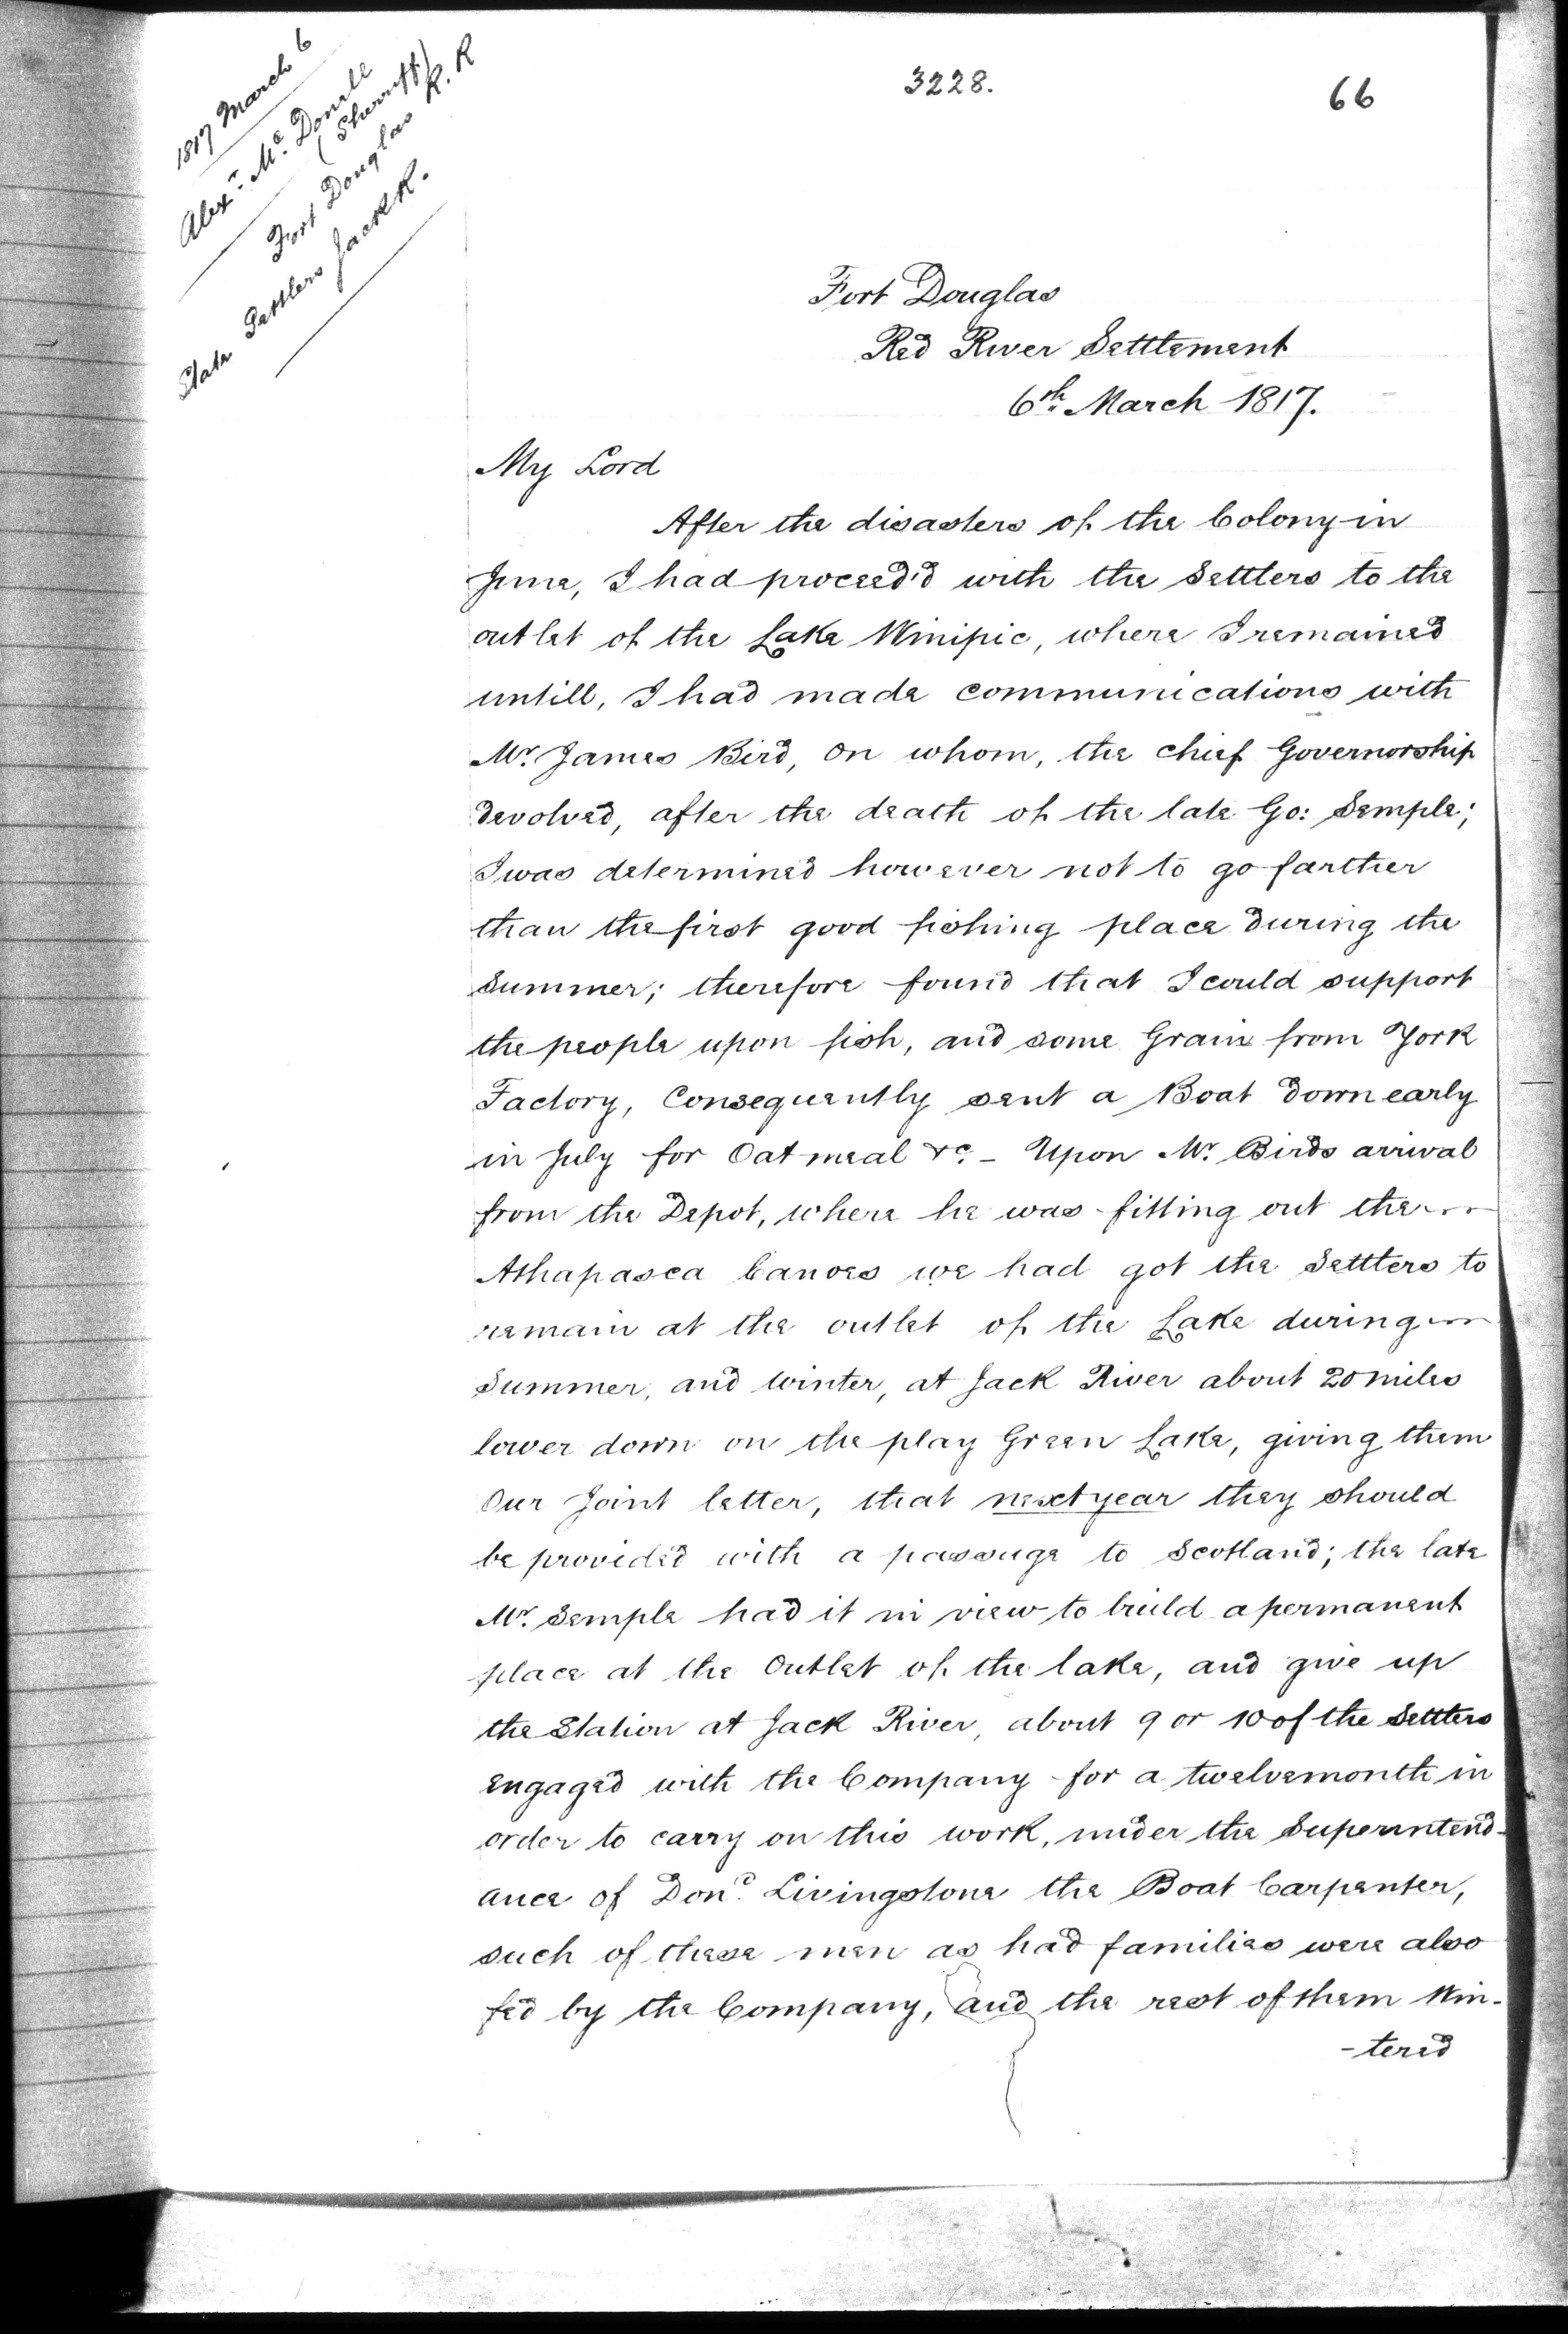 3228.
66
1817 March 6
Alexr. Mc. Donell
(Sherriff)
Fort Douglas R. R
State Settlers Jack R.
Fort Douglas
Red River Settlement
6th. March 1817.
My Lord
After the disasters of the Colony in
June, I had proceed'd with the Settlers to the
outlet of the Lake Winipic, where I remained
untill, I had made communications with
Mr. James Bird, on whom, the chief Governorship
devolved, after the death of the late Go: Semple;
I was determined however not to go farther
than the first good fishing place during the
Summer; therefore found that I could support
the people upon fish, and some Grain from York
Factory, Consequently sent a Boat down early
in July for Oatmeal &c. - Upon Mr. Birds arrival
from the Depot, where he was fitting out the
Athapasca Canoes we had got the Settlers to
remain at the outlet of the Lake during
Summer, and Winter, at Jack River about 20 miles
lower down on the play Green Lake, giving them
Our Joint letter, that next year they should
be provided with a passage to Scotland; the late
Mr. Semple had it in view to build a permanent
place at the Outlet of the lake, and give up
the Station at Jack River, about 9 or 10 of the Settlers
engaged with the Company for a twelvemonth in
order to carry on this work, under the Superintend-
ance of Dond. Livingstone the Boat Carpenter,
such of these men as had families were also
fed by the Company, and the rest of them Win-
-terid